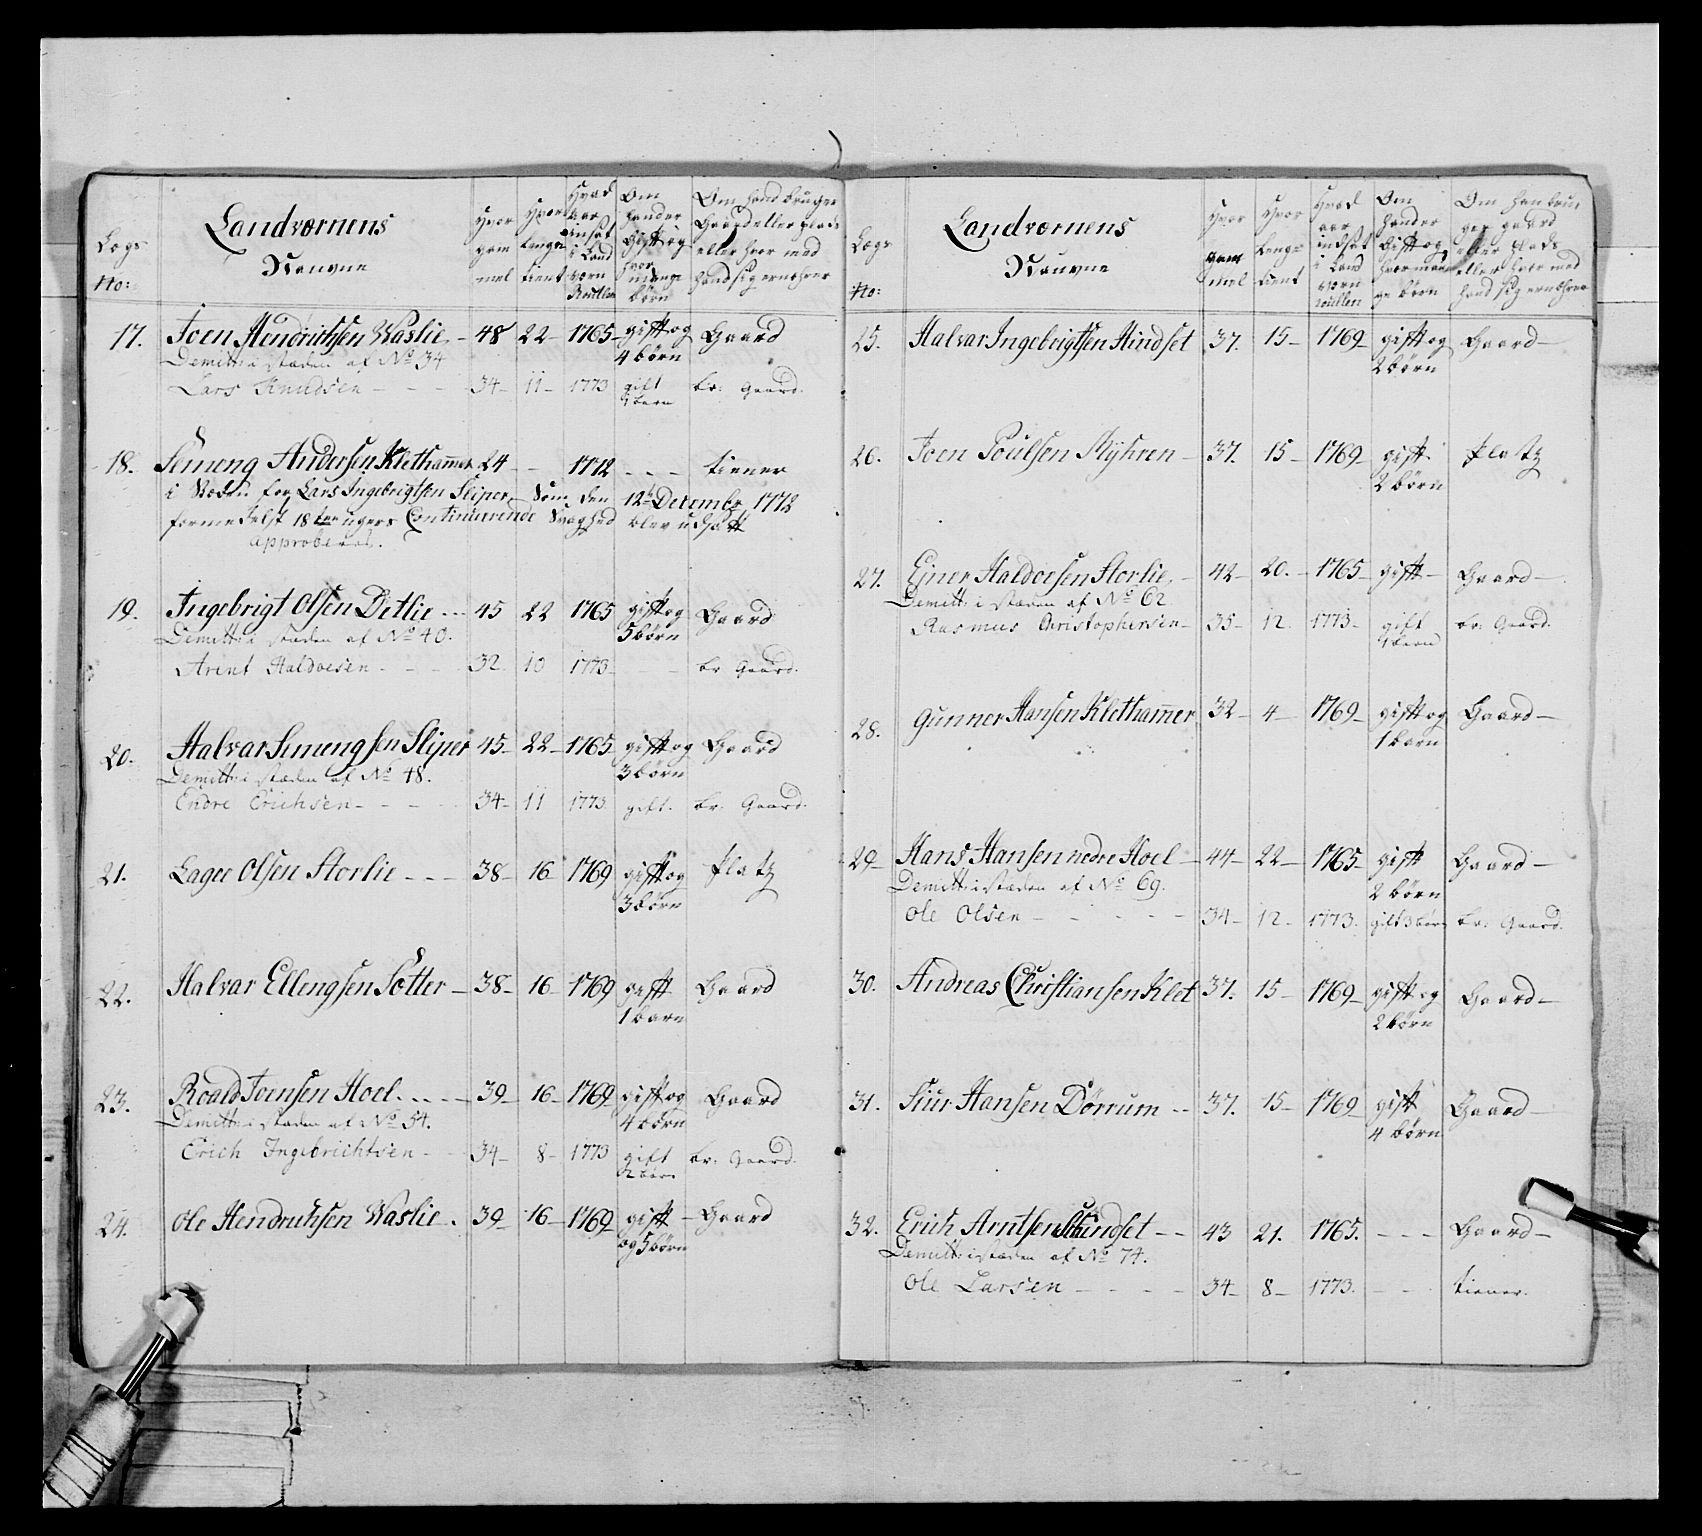 Lægs No:
Landværnens Nauvne
Hvor gammel
Hvor lenge tient
Hvad aar indsat i Land værn Rullen
Om hand er Gift og hvor mange börn
Om hand bruger Gaard eller plads eller hvor med hand sig ernærer
17. Joen Hendrichsen Waslie - 48 22 1765 gift og 4 börn Gaard
Demitt: i stæden af No 34
Lars Knudsen - - - 34 - 11 - 1773 gift 1 barn br: Gaard.
18. Simeng Andersen Klethammer 24 - - 1772 - - - tiener
i Stæden for Lars Ingebrigtsen Sliper, Som den 12te Decembr 1772
formedelst 18 ten ugers Continuerende Svaghed blev udsatt
Approberes.
19. Ingebrigt Olsen Ditlie - - 45 22 1765 gift og 5 börn Gaard
Demitt: i stæden af No 40.
Arent Haldoesen - - - 32 10 1773 - br Gaard.
20. Halvar Simengsen Sliper 45 - 22 - 1765 gift og 3 börn Gaard
Demitt: i stæden af No 48.
Endre Erichsen - - - 34 - 11 1773 gift. br: Gaard.
21. Lager Olsen Storlie - - - 38 - 16 1769 gift og 3 börn Platz
22. Halvar Ellengsen Sötter - 38 - 16 - 1769 gift 1 barn Gaard
23. Roald Joensen Hoel - - - 39 - 16 - 1769 gift og 4 börn Gaard
Demitt: i stæden af No 54.
Erich Ingebrichtsen - 34 - 8 - 1773 gift 2 börn br: Gaard.
24. Ole Hendrichsen Waslie. 39 - 16 - 1769 gift og 5 börn - Gaard
Lægs No:
Landværnens Nauvne
Hvor gammel
Hvor lenge tient
Hvad aar indsat i Land værn rullen
Om hand er Gift og hvor mange börn
Om han bruger gaard eller plads eller hvor med hand sig ernærer
25. Halvar Ingebrigtsen Hindset 37. 15 - 1769 - gift og 2 börn Gaard -
26. Joen Poulsen Myhren - 37. 15 - 1769 - gift 2 börn Platz
27. Ejner Haldoesen Storlie, - 42 - 20. - 1765 - gift - Gaard -
Demitt: i stæden af No 62
Rasmus Christophersen - 35 - 12. 1773 - gift 1 barn br: Gaard.
28. Gunner Hansen Klethammer 32 - 4 - 1769 - gift og 1 barn Gaard -
29 - Hans Hansen nedre Hoel - 44 - 22 - 1765 - gift 2 börn Gaard -
Demitt: i stæden af No 69.
Ole Olsen - - - - - 34 - 12. 1773. gift 3 börn br: Gaard.
30. Andreas Christiansen Klet 37. 15 - 1769 - gift og 2 börn Gaard -
31. Siur Hansen Dörrum - - 37. 15 - 1769 - gift 4 börn Gaard -
32. Erich Arntsen - - 43 21. 1765. - - - Gaard -
Demitt: i stæden af No 74.
Ole Larsen - - - - 34 - 8 - 1773. - - - tiener.